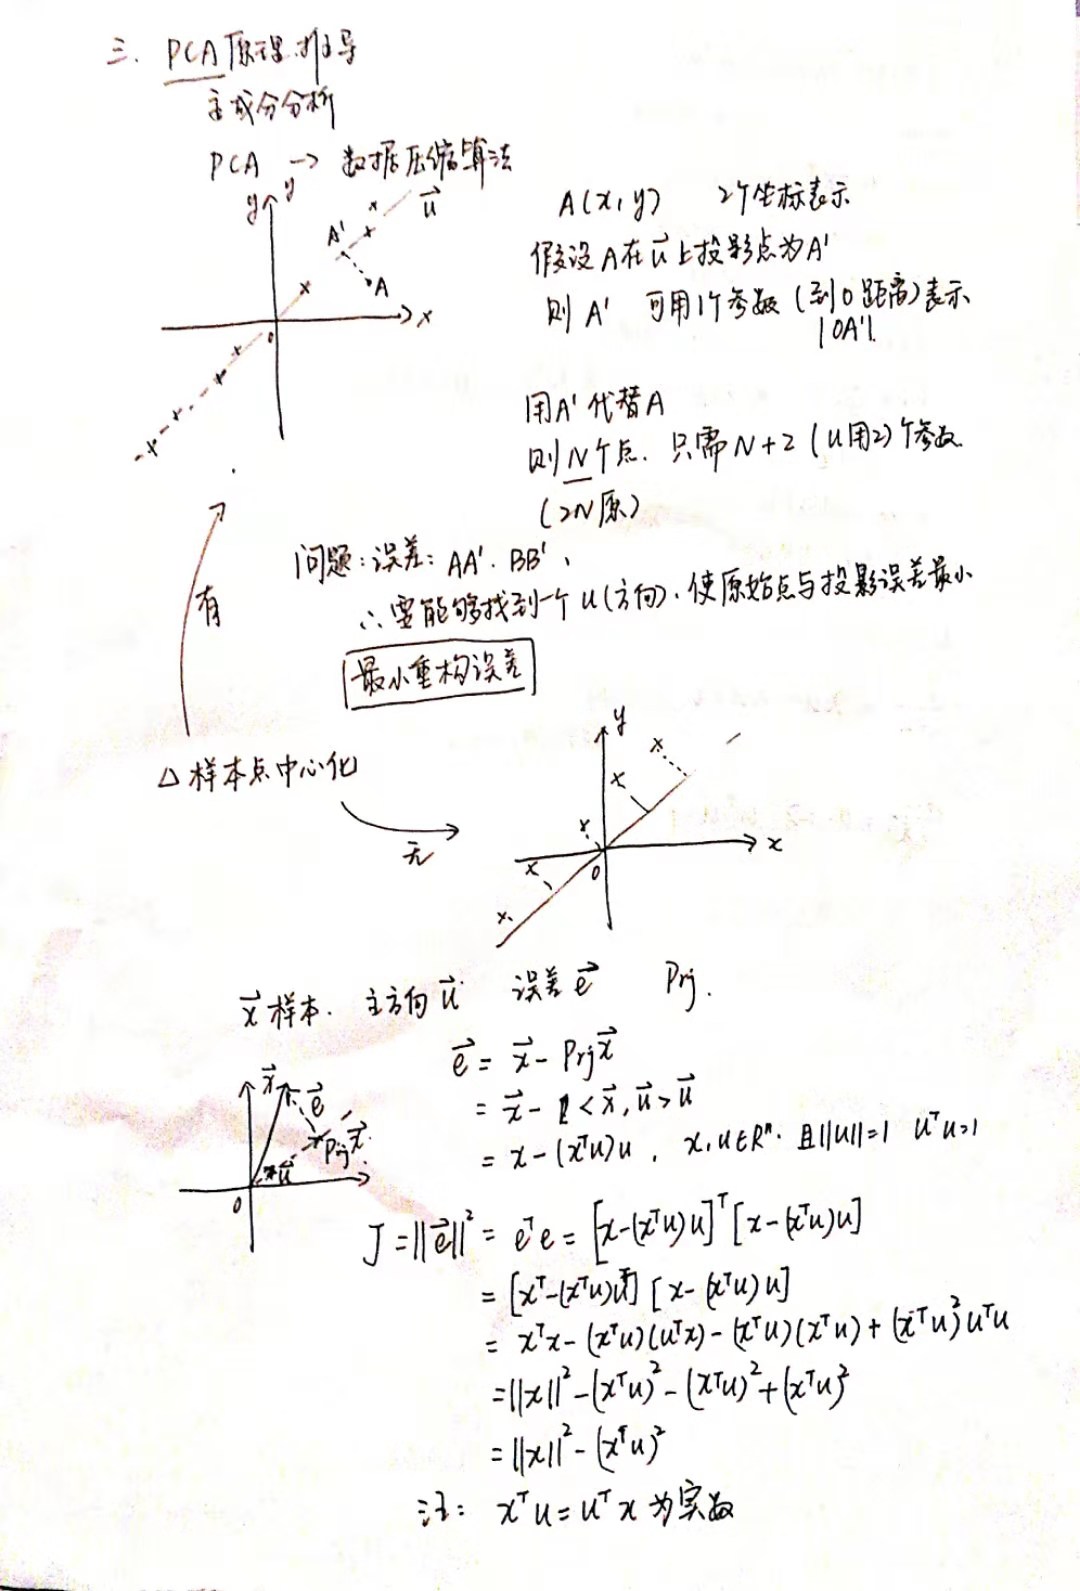 三. PCA原理推导
主成分分析
PCA → 数据压缩算法
y y u⃗
A' A
x
0
A(x, y) 2个坐标表示
假设A在u⃗上投影点为A'
则 A' 可用1个参数 (到0距离)表示
|OA'|.
用A'代替A
则N个点. 只需N+2 (u用2)个参数
(2N原)
问题:误差: AA'. BB'、
∴要能够找到一个u(方向). 使原始点与投影误差最小
最小重构误差
有
△样本点中心化
无
y
x
0
x⃗样本. 主方向u⃗ 误差e⃗ Prj.
e⃗ = x⃗ - Prj x⃗
= x⃗ - <x⃗, u⃗> u⃗
= x - (xᵀu)u , x, u∈Rⁿ. 且||u||=1 uᵀu=1
x⃗ e⃗
Prj x⃗
u⃗
0
J = ||e⃗||² = eᵀe = [x-(xᵀu)u]ᵀ[x-(xᵀu)u]
= [xᵀ-(xᵀu)uᵀ] [x-(xᵀu)u]
= xᵀx-(xᵀu)(uᵀx)-(xᵀu)(xᵀu)+(xᵀu)²uᵀu
= ||x||²-(xᵀu)²-(xᵀu)²+(xᵀu)²
= ||x||²-(xᵀu)²
注: xᵀu=uᵀx 为实数